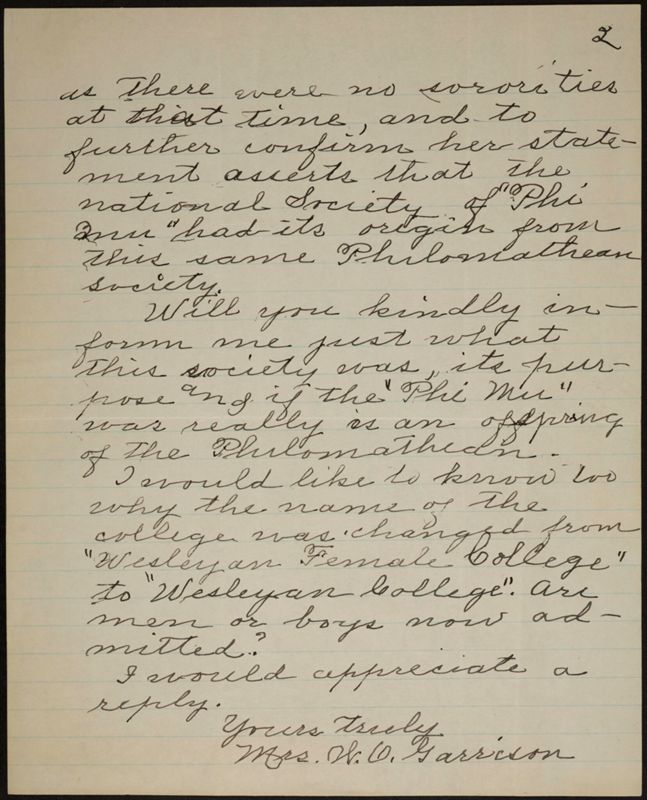 2
as there were no sororities
at that time, and to
further confirm her state-
ment asserts that the
national Society of "Phi
Mu" had its origin from
this same Philomathean
society.
Will you kindly in-
form me just what
this society was, its pur-
pose and if the "Phi Mu"
was really is an offspring
of the Philomathean.
I would like to know too
why the name of the
college was changed from
"Wesleyan Female College"
to "Wesleyan College". Are
men or boys now ad-
mitted?
I would appreciate a
reply.
Yours truly
Mrs. W. O. Garrison